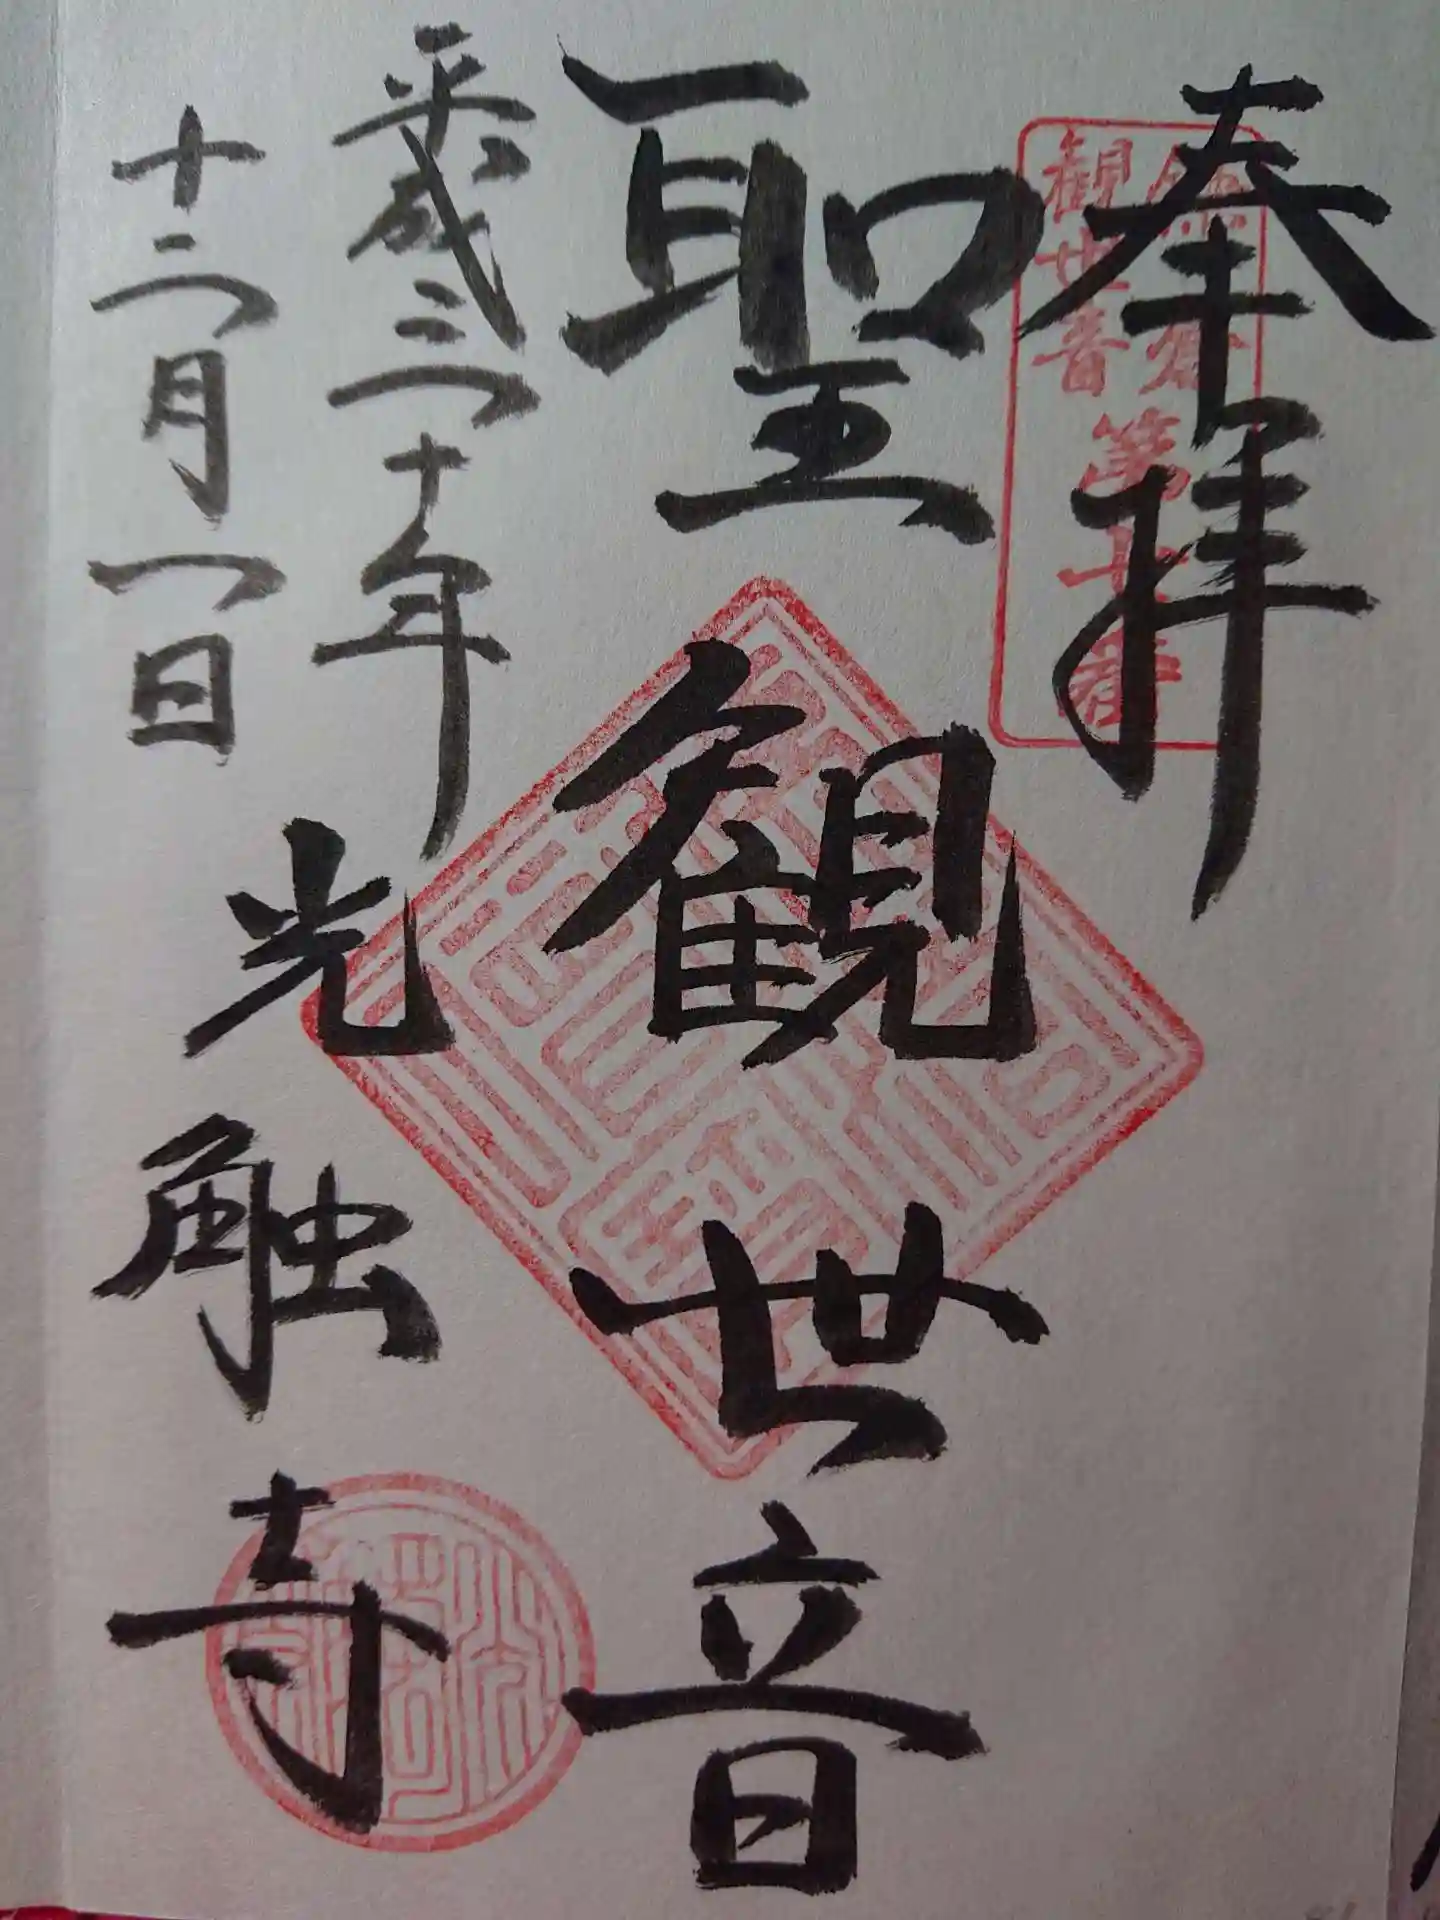 奉拝
鎌倉
観世音
第七番
聖観世音
平成三十年
十二月一日
光触寺